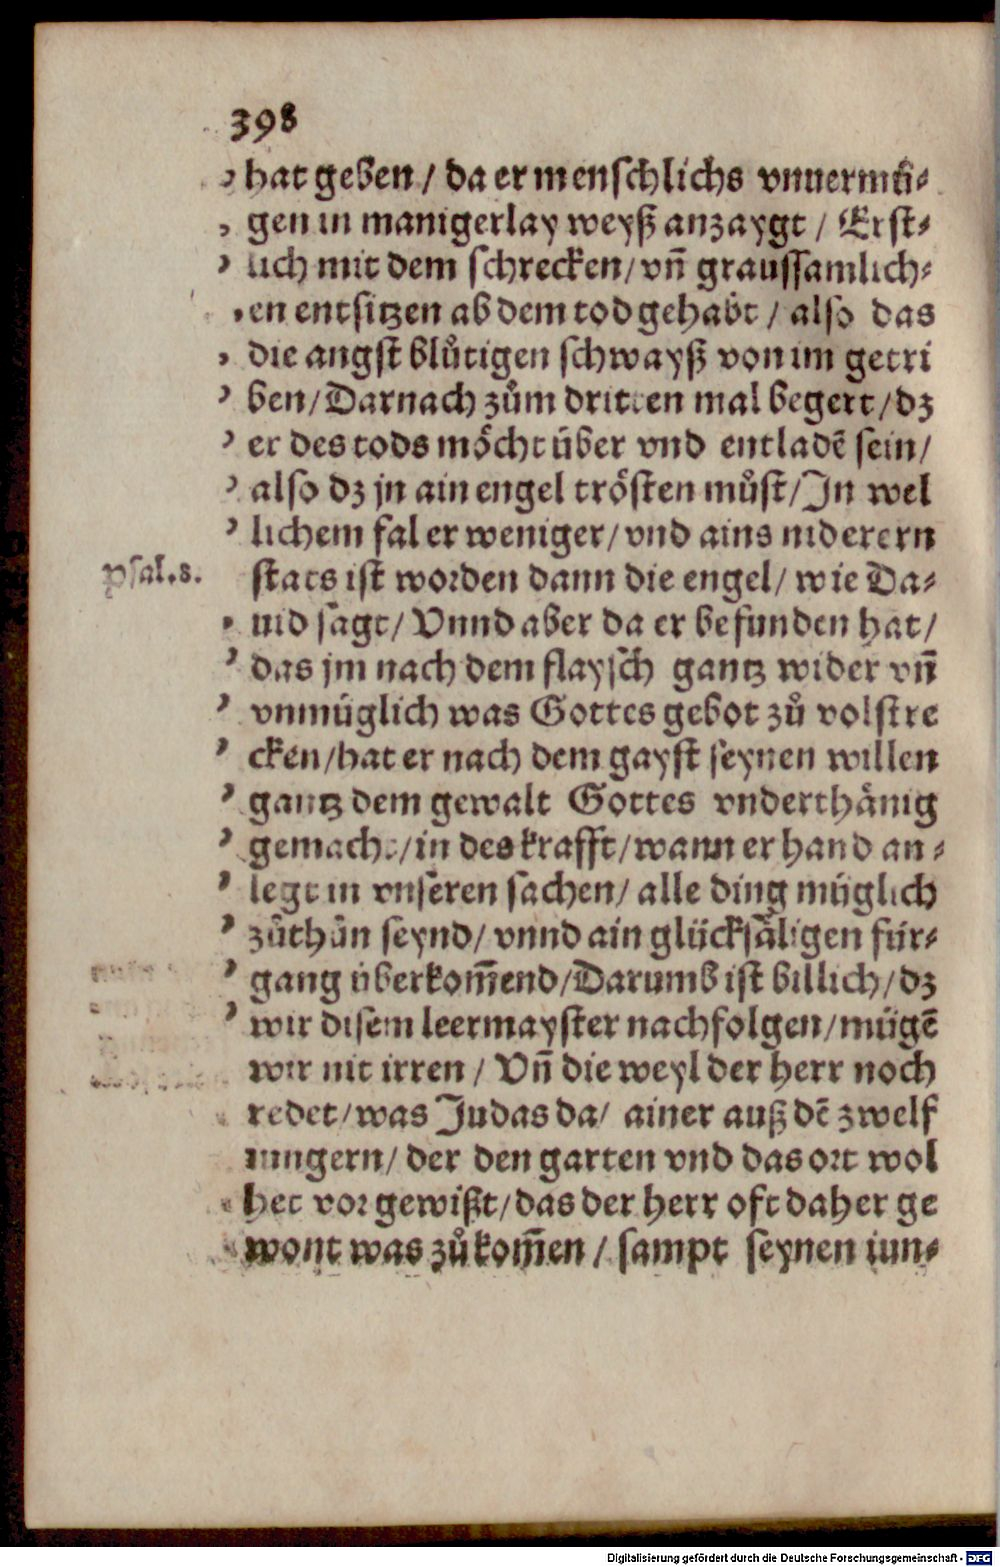 398
hat geben / da er menschlichs vnuermü⸗
gen in manigerlay weyß anzaygt / Erst⸗
lich mit dem schrecken / vn̄ graussamlich⸗
en entsitzen ab dem tod gehabt / also das
die angst blůtigen schwayß von im getri
ben / Darnach zům dritten mal begert / dz
er des tods möcht über vnd entladē sein /
also dz jn ain engel trösten můst / In wel
lichem fal er weniger / vnd ains niderern
psal. 8. stats ist worden dann die engel / wie Da⸗
uid sagt / Vnnd aber da er befunden hat /
das jm nach dem flaysch gantz wider vn̄
vnmüglich was Gottes gebot zů volstre
cken / hat er nach dem gayst seynen willen
gantz dem gewalt Gottes vnderthänig
gemacht / in des krafft / wann er hand an⸗
legt in vnseren sachen / alle ding müglich
zůthůn seynd / vnnd ain glücksäligen für⸗
gang überkom̄end / Darumb ist billich / dz
wir disem leermayster nachfolgen / mügē
wir nit irren / Vn̄ die weyl der herr noch
redet / was Judas da / ainer auß dē zwelf
iungern / der den garten vnd das ort wol
het vor gewißt / das der herr oft daher ge
wont was zůkom̄en / sampt seynen iun⸗
Digitalisierung gefördert durch die Deutsche Forschungsgemeinschaft - DFG